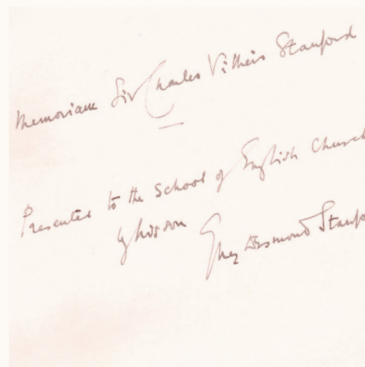 Memoriam Sir Charles Villiers Stanford
Presented to the School of English Church
by his son
Guy Desmond Stanfo